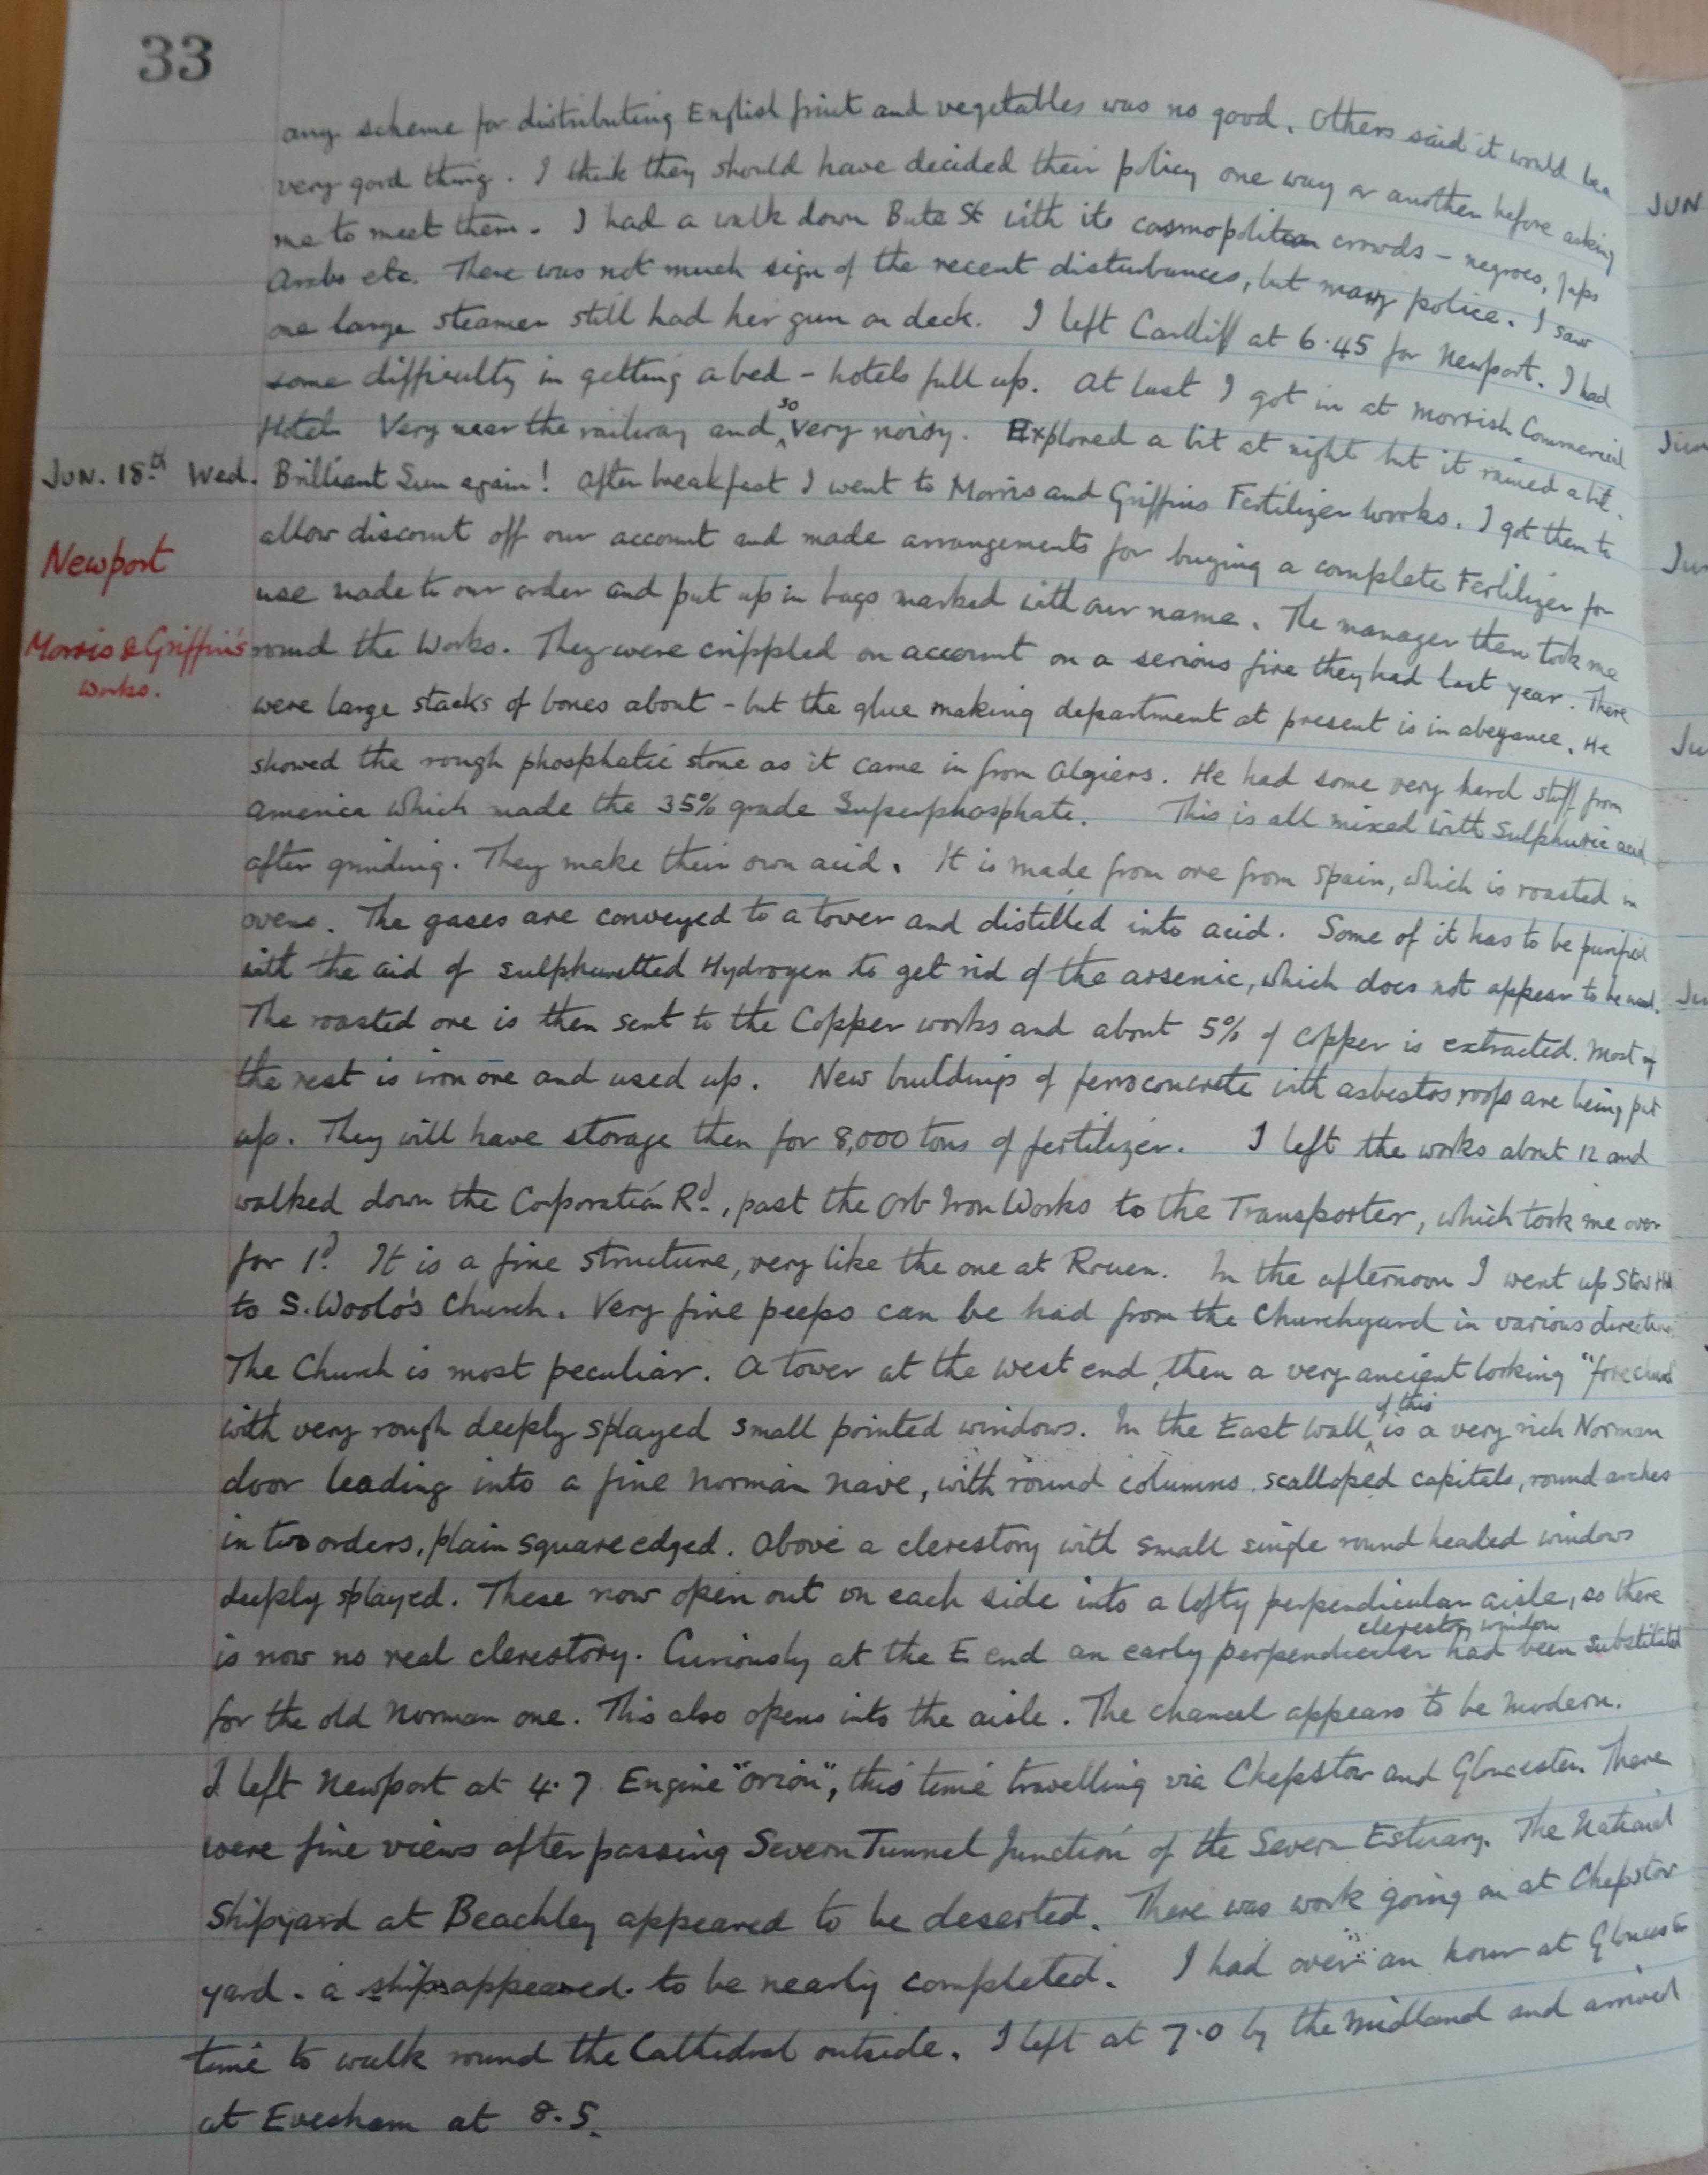 33
any scheme for distributing English fruit and vegetables was no good. Others said it would be a
very good thing. I think they should have decided their policy one way or another before asking
me to meet them. I had a walk down Bute St with its cosmopolitan crowds - negroes, Japs
Arabs etc. There was not much sign of the recent disturbances, but many police. I saw
one large steamer still had her gun on deck. I left Cardiff at 6.45 for Newport. I had
some difficulty in getting a bed - hotels full up. At last I got in at Morrish Commercial
Hotel. Very near the railway and so very noisy. Explored a bit at night but it rained a bit.
JUN. 18th Wed. Brilliant Sun again! After breakfast I went to Morris and Griffins Fertilizer works. I got them to
allow discount off our account and made arrangements for buying a complete Fertilizer for
Newport
use made to our order and put up in bags marked with our name. The manager then took me
Morris & Griffin's works.
round the Works. They were crippled on account on a serious fire they had last year. There
were large stacks of bones about - but the glue making department at present is in abeyance. He
showed the rough phosphatic stone as it came in from Algiers. He had some very hard stuff from
America which made the 35% grade Superphosphate. This is all mixed with Sulphuric acid
after grinding. They make their own acid. It is made from ore from Spain, which is roasted in
ovens. The gases are conveyed to a tower and distilled into acid. Some of it has to be purified
with the aid of sulphuretted Hydrogen to get rid of the arsenic, which does not appear to be used.
The roasted ore is then sent to the Copper works and about 5% of copper is extracted. Most of
the rest is iron ore and used up. New buildings of ferroconcrete with asbestos roofs are being put
up. They will have storage then for 8,000 tons of fertilizer. I left the works about 12 and
walked down the Corporation Rd., past the Orb Iron Works to the Transporter, which took me over
for 1d. It is a fine structure, very like the one at Rouen. In the afternoon I went up Stow Hill
to S. Woolo's Church. Very fine peeps can be had from the Churchyard in various directions
The Church is most peculiar. A tower at the west end, then a very ancient looking "forechurch"
with very rough deeply splayed small pointed windows. In the East wall of this is a very rich Norman
door leading into a fine Norman nave, with round columns, scalloped capitals, round arches
in two orders, plain square edged. Above a clerestory with small single round headed windows
deeply splayed. These now open out on each side into a lofty perpendicular aisle, so there
is now no real clerestory. Curiously at the E end an early perpendicular clerestory window had been substituted
for the old Norman one. This also opens into the aisle. The chancel appears to be modern.
I left Newport at 4.7. Engine "Orion", this time travelling via Chepstow and Gloucester. There
were fine views after passing Severn Tunnel Junction of the Severn Estuary. The National
Shipyard at Beachley appeared to be deserted. There was work going on at Chepstow
yard. a ship appeared to be nearly completed. I had over an hour at Gloucester
time to walk round the Cathedral outside. I left at 7.0 by the Midland and arrived
at Evesham at 8.5.
JUN